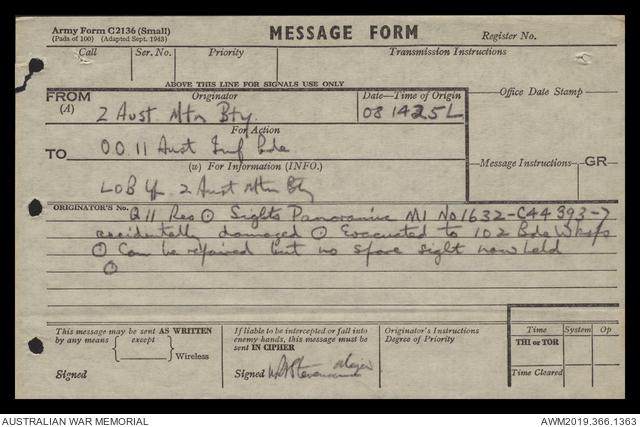 Army Form C2136 (Small)
(Pads of 100) (Adapted Sept. 1943)
MESSAGE FORM
Register No.
Call Ser. No. Priority Transmission Instructions
ABOVE THIS LINE FOR SIGNALS USE ONLY
FROM Originator Date—Time of Origin Office Date Stamp
(A) 2 Aust Mtn Bty. 081425L
For Action
TO OO. 11 Aust Inf Bde
(w) For Information (INFO.) Message Instructions GR
LOB 2 Aust Mtn Bty
ORIGINATOR'S No. Q11 Res ⊙ Sights Panoramic M1 No 1632-C44393-7
accidentally damaged ⊙ Evacuated to 102 Bde Wksps
⊙ Can be repaired but no spare sight now held
⊙
This message may be sent AS WRITTEN
by any means except
Wireless
Signed
If liable to be intercepted or fall into
enemy hands, this message must be
sent IN CIPHER
Signed Major
Originator's Instructions
Degree of Priority
Time System Op
THI or TOR
Time Cleared
AUSTRALIAN WAR MEMORIAL AWM2019.366.1363